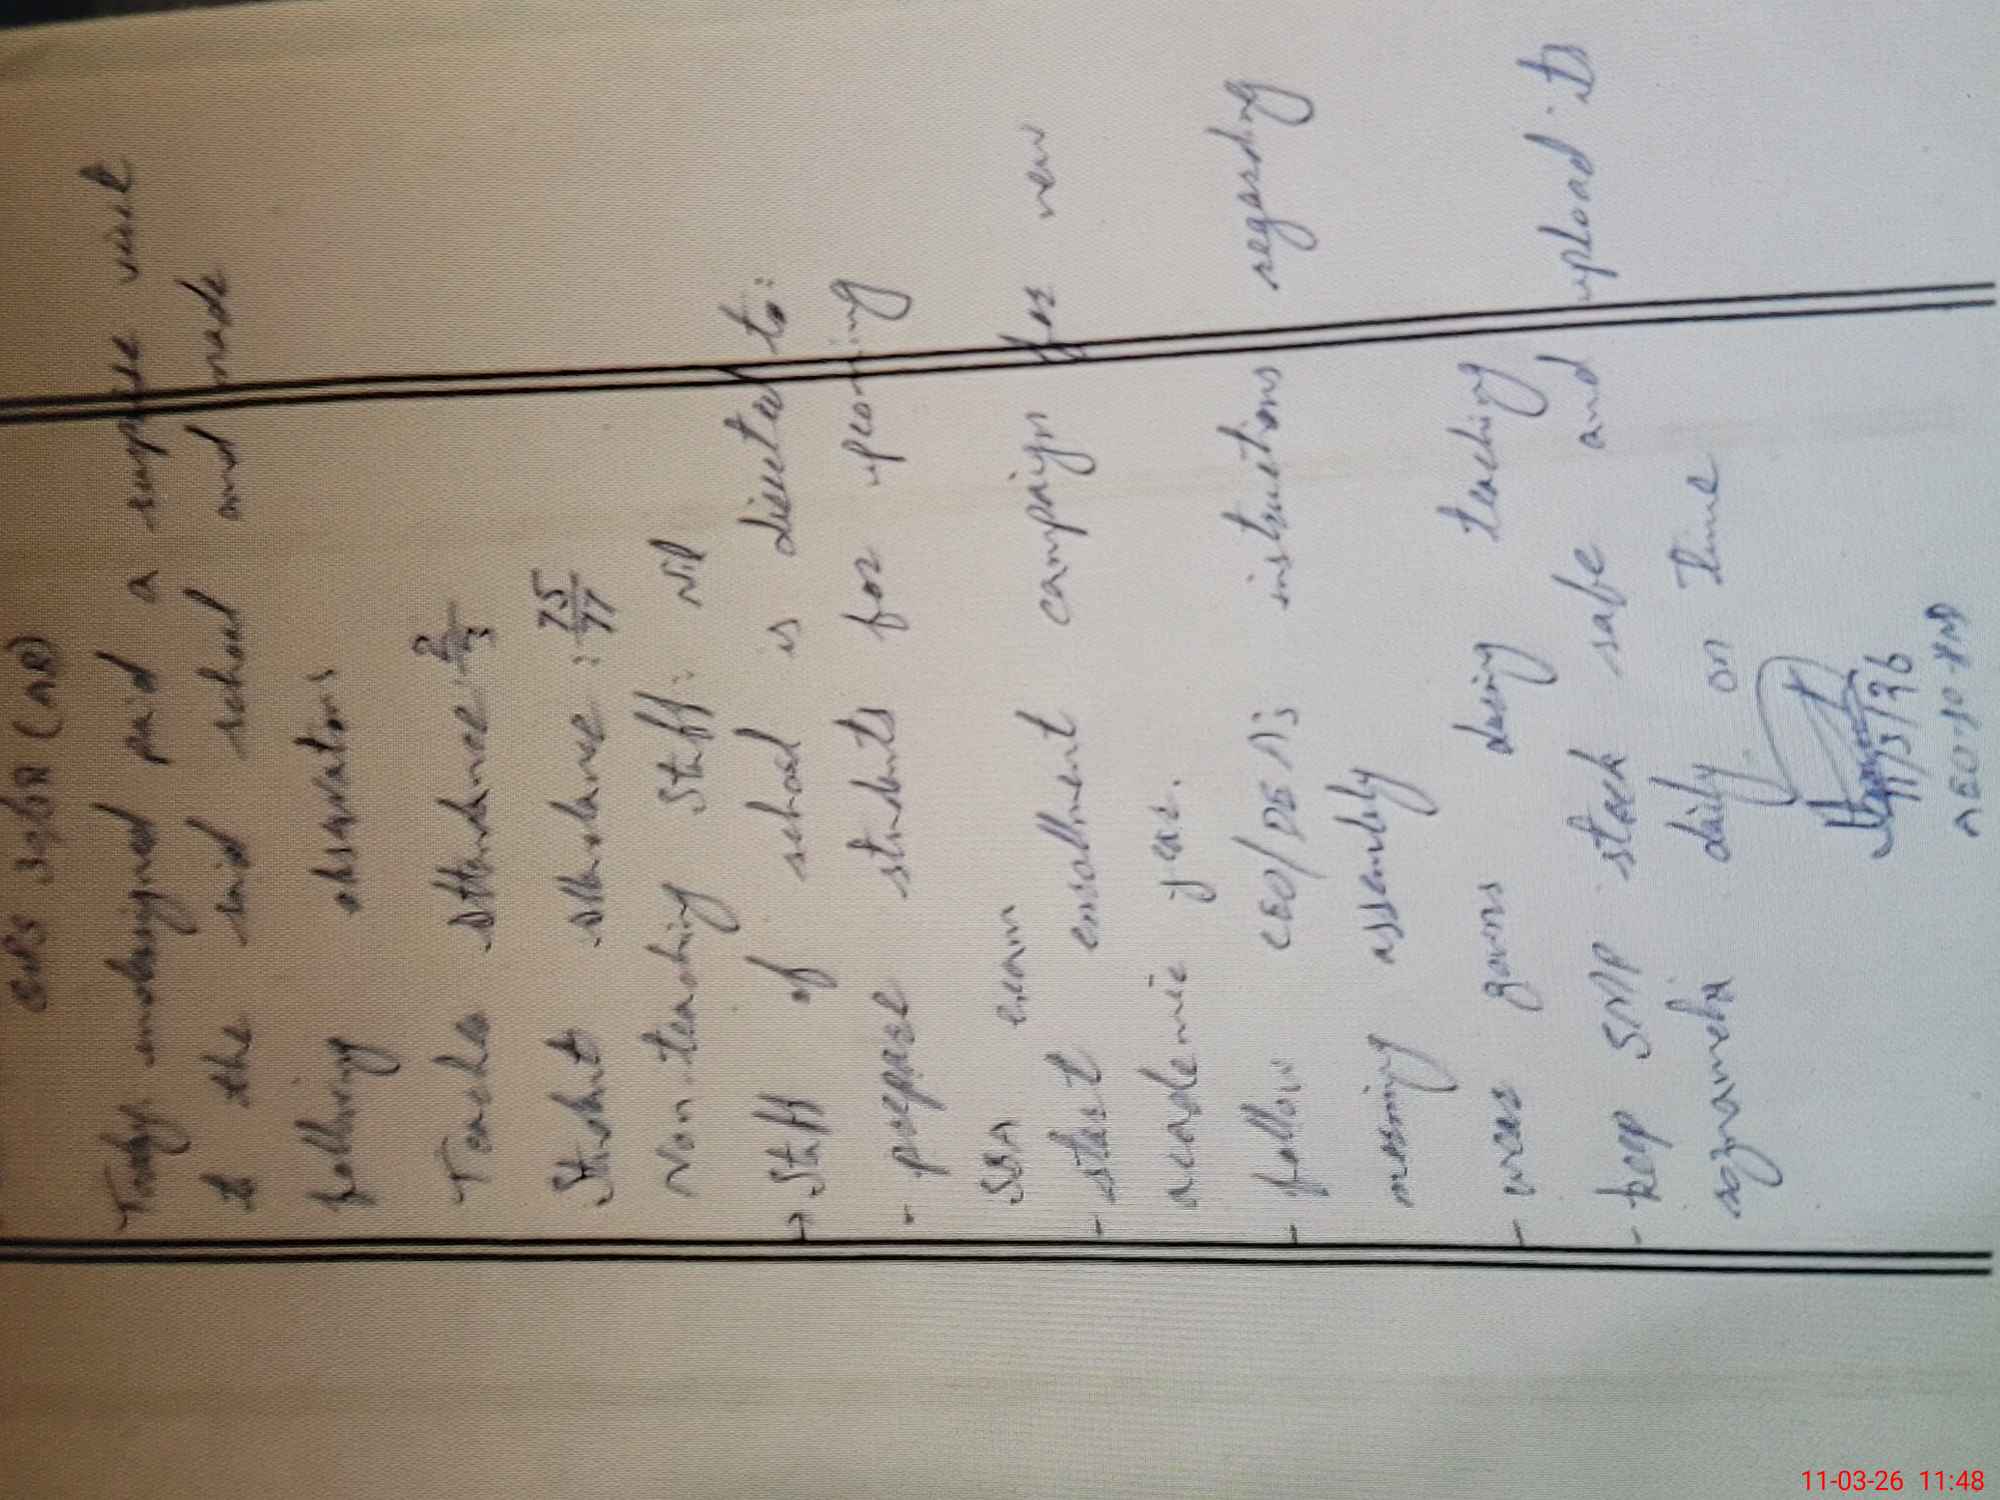 Today undersigned paid a surprise visit
to the said school and made
following observations
Teacher Attendance: 2/3
Student Attendance: 75/77
Non-teaching Staff: Nil
→ Staff of school is directed to:
- prepare students for upcoming
SBA exam
- start enrollment campaign for new
academic year.
- follow CEO/DEA's instructions regarding
morning assembly
- wear gowns during teaching
- keep SMP stock safe and upload its
daily on Time
11/3/26
11-03-26 11:48